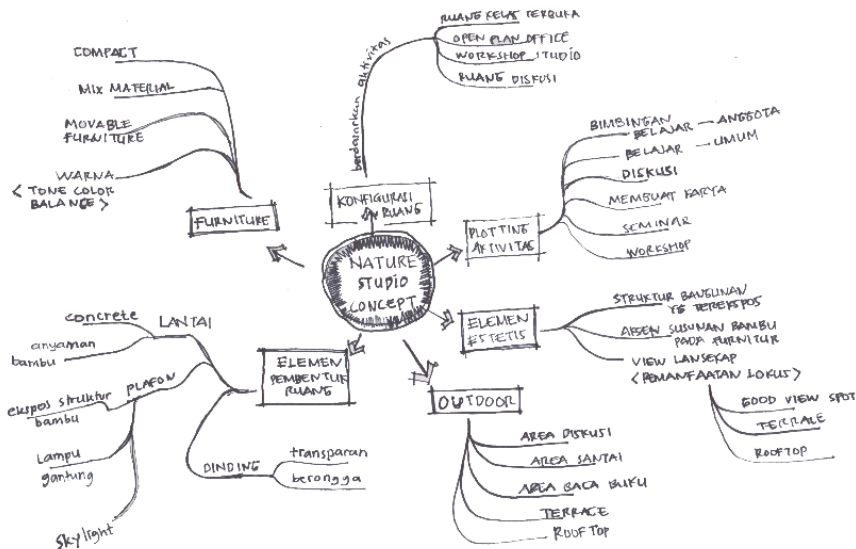 NATURE
STUDIO
CONCEPT
FURNITURE
COMPACT
MIX MATERIAL
MOVABLE
FURNITURE
WARNA
< TONE COLOR
BALANCE >
KONFIGURASI
RUANG
berdasarkan aktivitas
RUANG KELAS TERBUKA
OPEN PLAN OFFICE
WORKSHOP STUDIO
RUANG DISKUSI
PLOTTING
AKTIVITAS
BIMBINGAN
BELAJAR — ANGGOTA
BELAJAR — UMUM
DISKUSI
MEMBUAT KARYA
SEMINAR
WORKSHOP
ELEMEN
ESTETIS
STRUKTUR BANGUNAN
YG TEREKSPOS
AKSEN SUSUNAN BAMBU
PADA FURNITUR
VIEW LANSEKAP
< PEMANFAATAN LOKUS >
GOOD VIEW SPOT
TERRACE
ROOFTOP
OUTDOOR
AREA DISKUSI
AREA SANTAI
AREA BACA BUKU
TERRACE
ROOFTOP
ELEMEN
PEMBENTUK
RUANG
LANTAI
concrete
anyaman
bambu
PLAFON
ekspos struktur
bambu
Lampu
gantung
skylight
DINDING
transparan
berongga